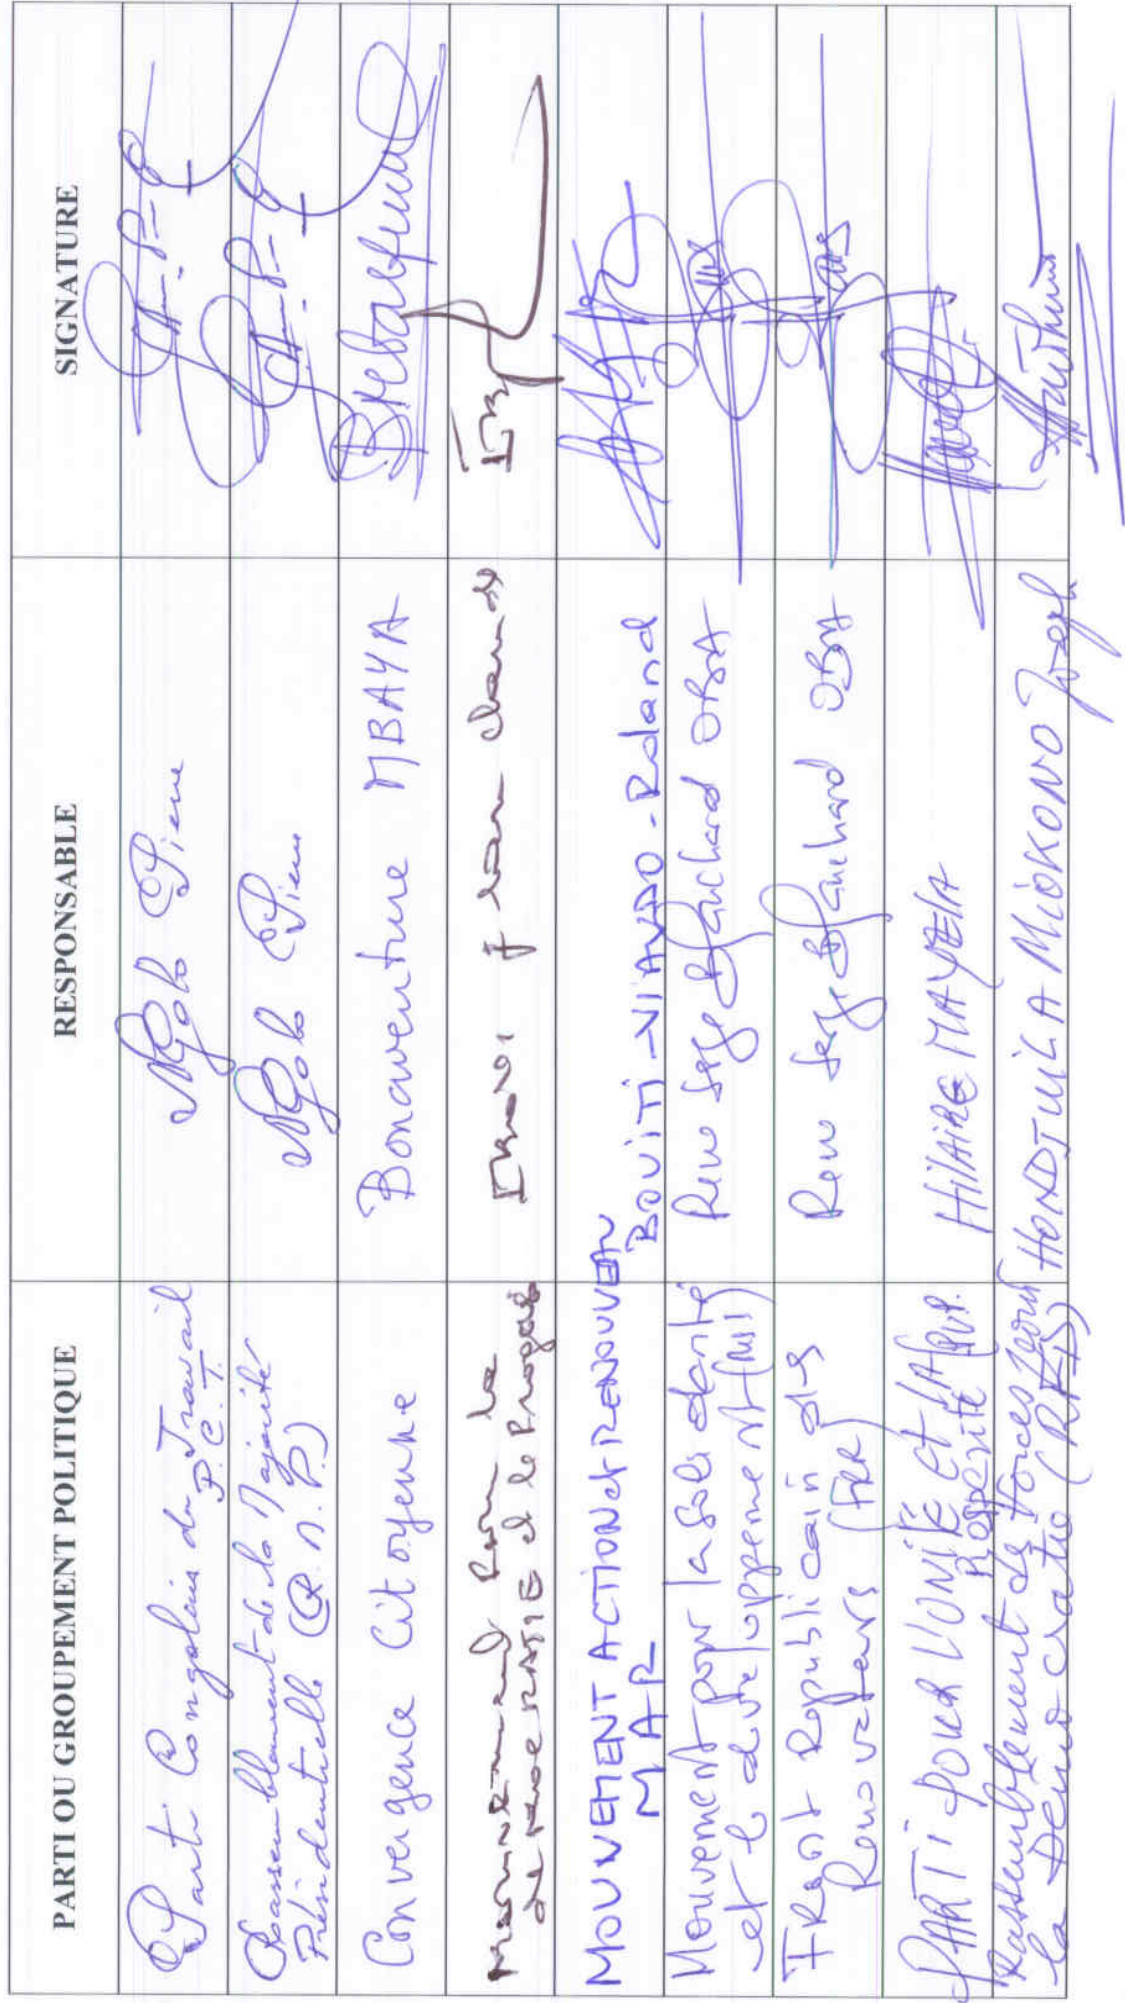 PARTI OU GROUPEMENT POLITIQUE RESPONSABLE SIGNATURE
Parti Congolais du Travail
P.C.T.
Ngolo Pierre
Rassemblement de la Majorité
Présidentielle (R.M.P.)
Ngolo Pierre
Convergence Citoyenne Bonaventure MBAYA
pour la
et le Progrès
MOUVEMENT ACTION et RENOUVEAU
MAR
BOUITI-VIAUDO-Roland
Mouvement pour la solidarité
et le développement
Serge Blanchard OBA
Front Republicain des
(FRR)
Serge Blanchard OBA
PARTI POUR L'UNITÉ Et LA
Prospérité PUR.
HILAIRE MAYELA
Rassemblement de Forces pour
la Démocratie (RFD)
HONDJUILA MIOKONO Joseph